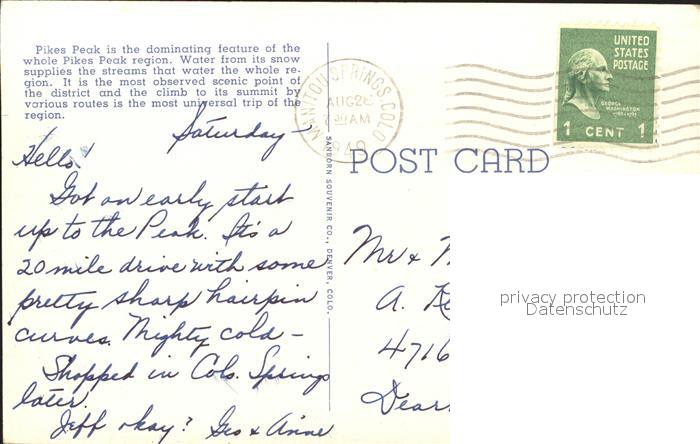 Pikes Peak is the dominating feature of the
whole Pikes Peak region. Water from its snow
supplies the streams that water the whole re-
gion. It is the most observed scenic point of
the district and the climb to its summit by
various routes is the most universal trip of the
region.
Saturday
Hello!
Got an early start
up to the Peak. It's a
20 mile drive with some
pretty sharp hairpin
curves. Mighty cold -
Shopped in Colo. Springs
later.
Jeff okay? Geo & Anne
SANBORN SOUVENIR CO., DENVER, COLO.
MANITOU SPRINGS, COLO
AUG 28
AM
1940
UNITED
STATES
POSTAGE
GEORGE
WASHINGTON
1 CENT 1
POST CARD
Mr &
A.
4716
Dear
privacy protection
Datenschutz